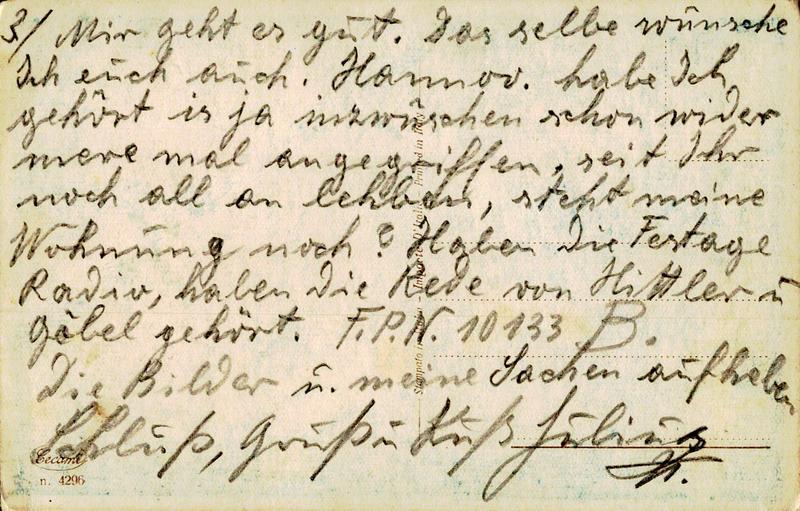 3/ Mir geht es gut. Das selbe wünsche
Ich euch auch. Hannov. habe Ich
gehört is ja inzwüschen schon wider
mere mal angegriffen, seit Ihr
noch all an lehben, steht meine
Wohnung noch? Haben die Festage
Radio, haben die Rede von Hittler u
Göbel gehört. F.P.N. 10133 B.
Die Bilder u. meine Sachen aufheben
Schluß, Gruß u Kuß Julius
Cecami
n. 4296